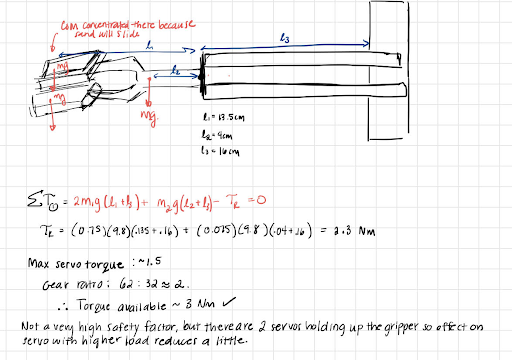 COM concentrated there because
sand will slide
l₁
l₃
mg
l₂
mg
mg
l₁ = 13.5cm
l₂ = 4cm
l₃ = 16cm
ΣT① = 2m₁g(l₁+l₃) + m₂g(l₂+l₃) - T_R = 0
T_R = (0.75)(9.8)(.135+.16) + (0.075)(9.8)(.04+.16) = 2.3 Nm
Max servo torque : ~1.5
Gear ratio : 62 : 32 ≈ 2.
∴ Torque available ~ 3 Nm ✓
Not a very high safety factor, but there are 2 servos holding up the gripper so effect on
servo with higher load reduces a little.